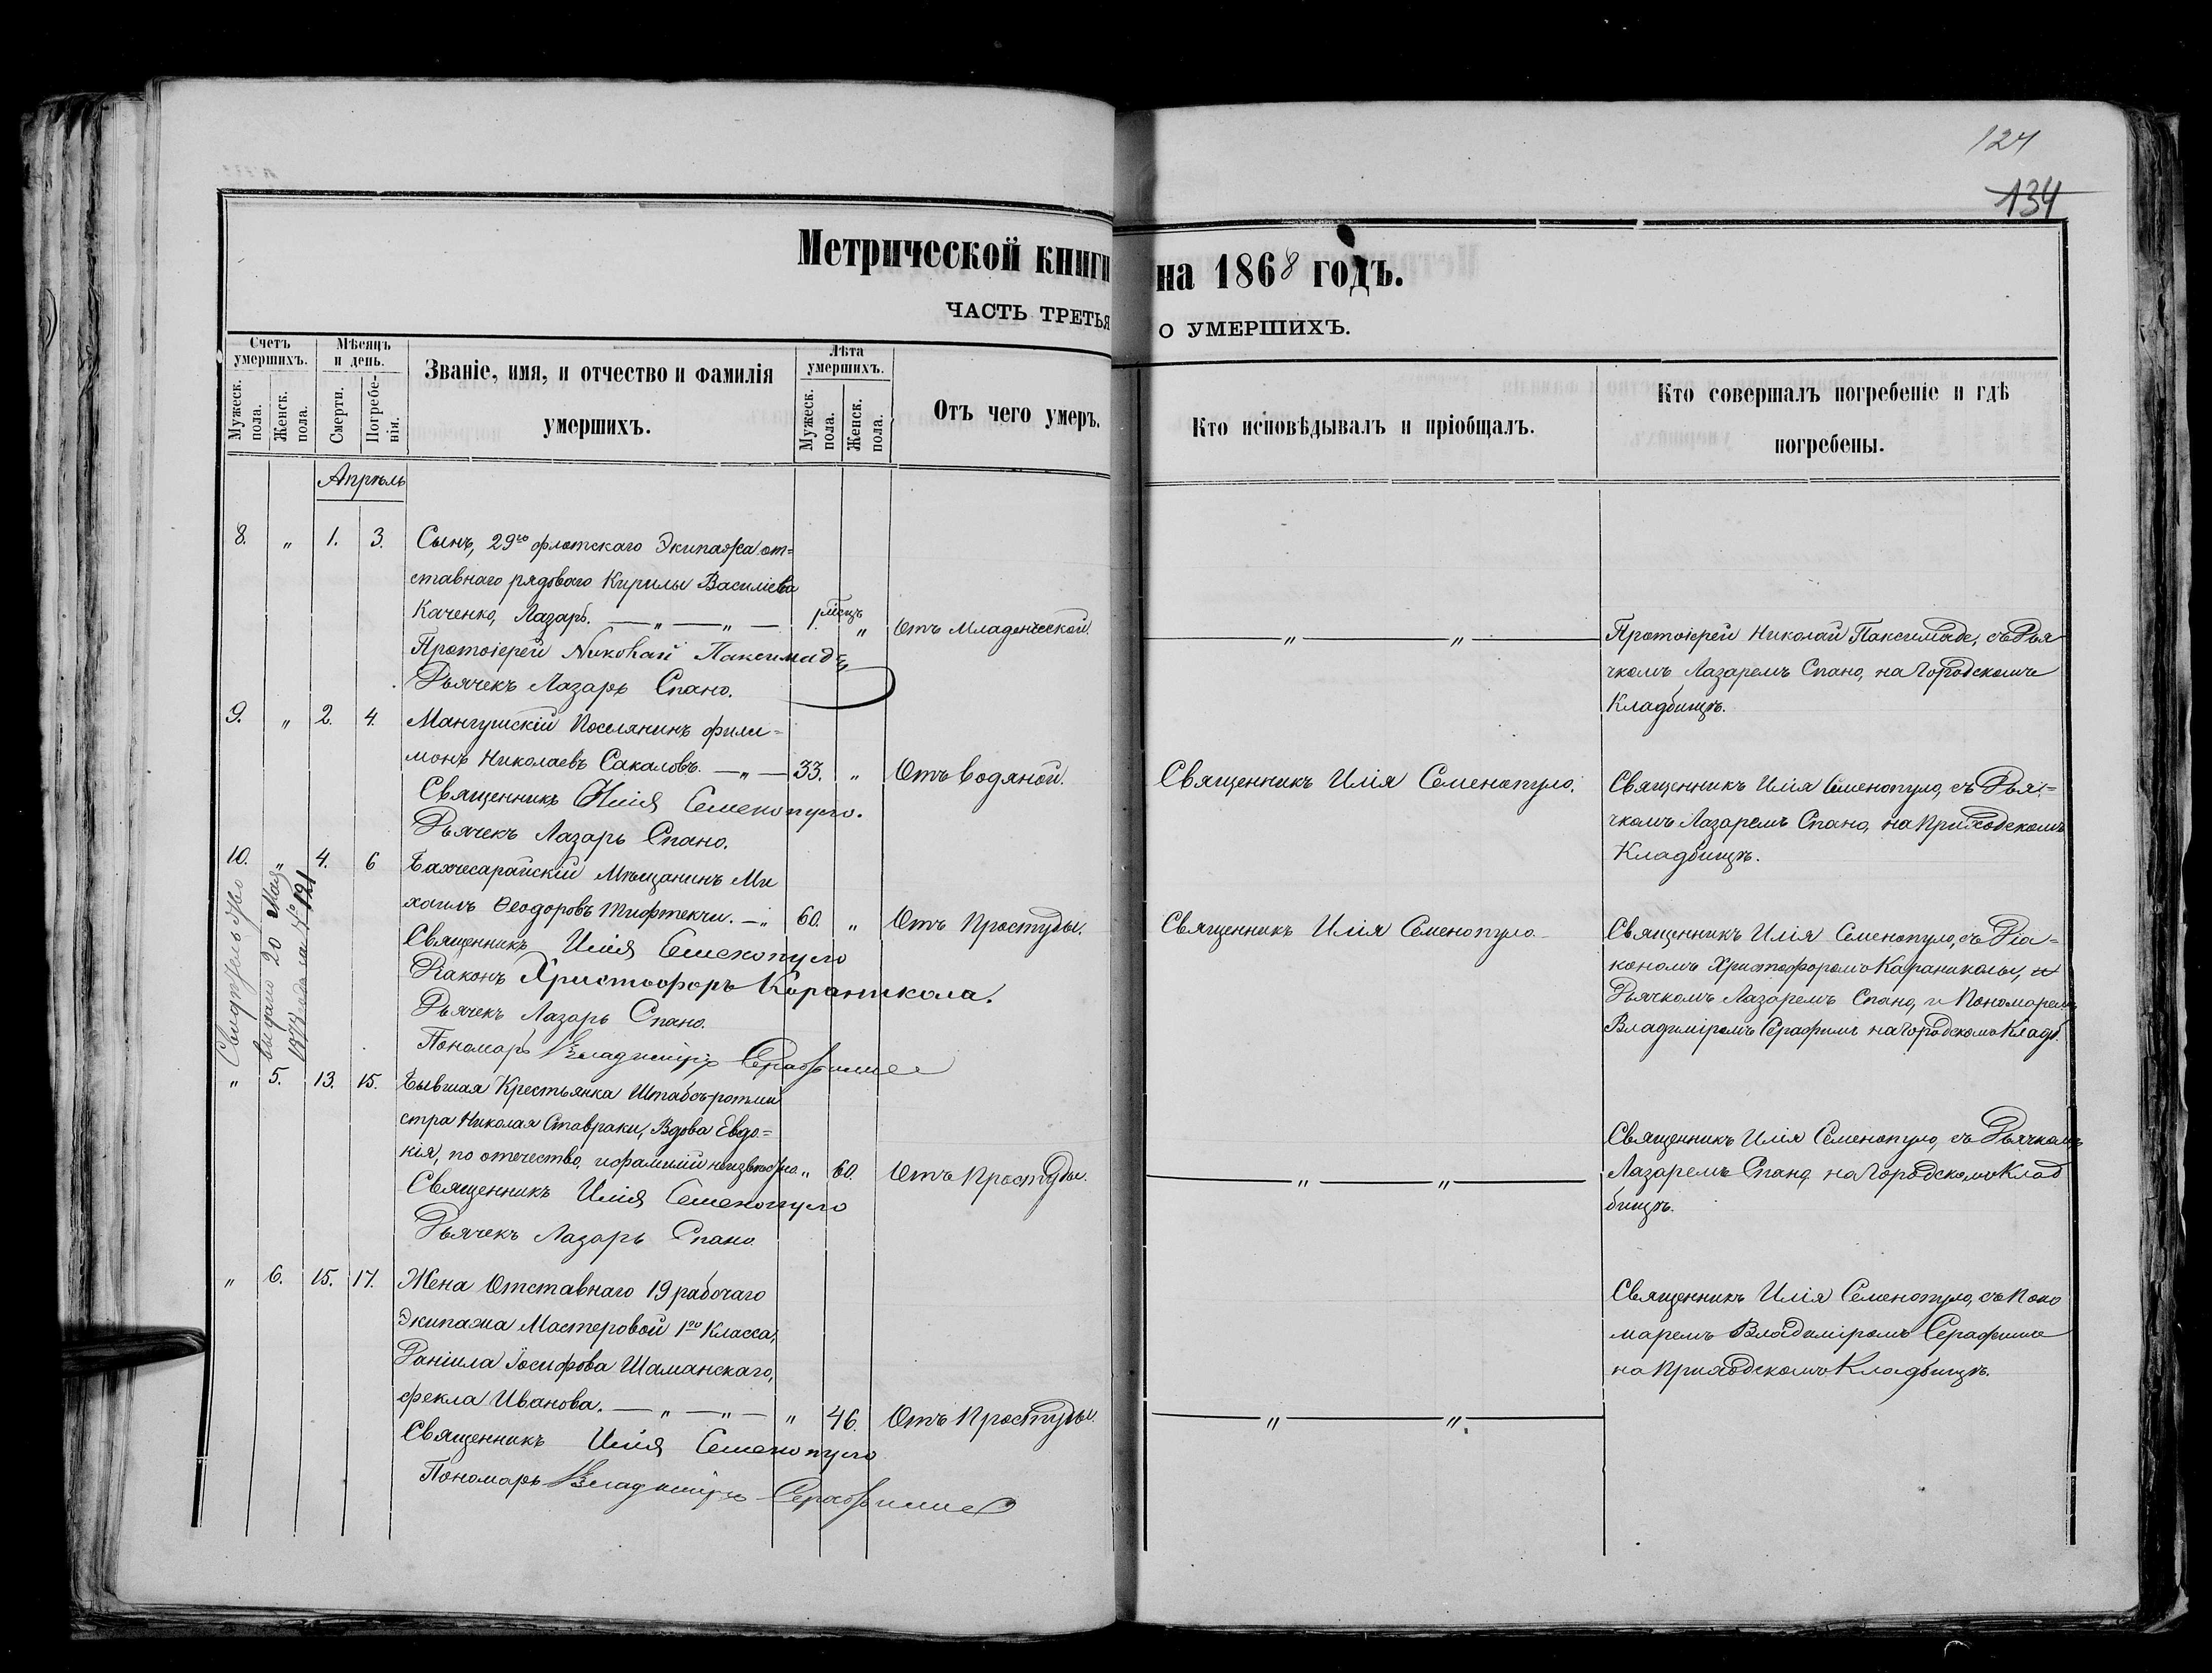 124
134
Метрической книги на 1868 годъ.
ЧАСТЬ ТРЕТЬЯ О УМЕРШИХЪ.
Счетъ умершихъ.
Мужеск. пола.
Женск. пола.
Мѣсяцъ и день.
Смерти.
Погребенія.
Званіе, имя, и отчество и фамилія
умершихъ.
Лѣта умершихъ.
Мужеск. пола.
Женск. пола.
Отъ чего умеръ.
Кто исповѣдывалъ и пріобщалъ.
Кто совершалъ погребеніе и гдѣ
погребены.
Апрѣль
8. " 1. 3. Сынъ, 29го флотскаго Экипажа от=
ставнаго рядоваго Кирилы Василіева
Каченко, Лазарь. — " — " — 1 мѣсяцъ " Отъ Младенческой. — " — " —
Протоіерей Николай Паксимаде
Дьячекъ Лазарь Спано.
Протоіерей Николай Паксимаде, съ Дья
чкомъ Лазаремъ Спано, на Городскомъ
Кладбищѣ.
9. " 2. 4. Мангушскій Поселянинъ Фили=
монъ Николаевъ Сакаловъ. — " — 33. " Отъ водяной. Священникъ Илія Семенопуло.
Священникъ Илія Семенопуло.
Дьячекъ Лазарь Спано.
Священникъ Илія Семенопуло, съ Дья=
чкомъ Лазаремъ Спано, на Приходскомъ
Кладбищѣ.
10. " 4. 6 Бахчесарайскій Мѣщанинъ Ми
хаилъ Ѳеодоровъ Тифтекчи. — " 60. " Отъ Простуды. Священникъ Илія Семенопуло
Священникъ Илія Семенопуло
Діаконъ Христофоръ Караникола.
Дьячекъ Лазарь Спано.
Пономарь Владиміръ Серафимъ
Священникъ Илія Семенопуло, съ Діа=
кономъ Христофоромъ Караниколы, и
Дьячкомъ Лазаремъ Спано, и Пономаремъ
Владиміромъ Серафимъ на Городскомъ Кладб.
Свидѣтельство
выдано 20 Мая
1873 года за № 121
" 5. 13. 15. Бывшая Крестьянка Штабсъ-ротми
стра Николая Ставраки, Вдова Евдо=
кія, по отечество, и фамиліи неизвѣстна. " 60. Отъ Простуды. — " — " —
Священникъ Илія Семенопуло
Дьячекъ Лазарь Спано
Священникъ Илія Семенопуло, съ Дьячкомъ
Лазаремъ Спано, на Городскомъ Клад
бищѣ.
" 6. 15. 17. Жена Отставнаго 19 рабочаго
Экипажа Мастеровой 1го Класса,
Даніила Іосифова Шаманскаго,
Фекла Иванова. — " — " — " 46. Отъ Простуды. — " — " —
Священникъ Илія Семенопуло
Пономарь Владиміръ Серафимъ
Священникъ Илія Семенопуло, съ Поно
маремъ Владиміромъ Серафимъ
на Приходскомъ Кладбищѣ.